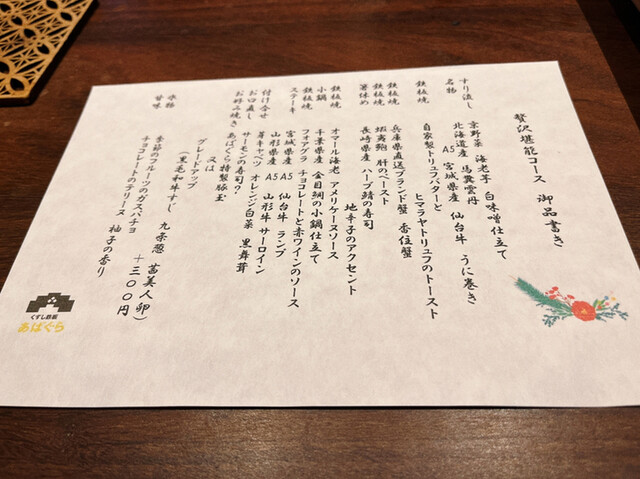 贅沢堪能コース 御品書き
すり流し 京野菜 海老芋 白味噌仕立て
名物 北海道産 馬糞雲丹
A5 宮城県産 仙台牛 うに巻き
鉄板焼 自家製トリュフバターと
ヒマラヤトリュフのトースト
鉄板焼 兵庫県直送ブランド蟹 香住蟹
鉄板焼 蝦夷鮑 肝のペースト
箸休め 長崎県産 ハーブ鯖の寿司
地辛子のアクセント
鉄板焼 オマール海老 アメリケーヌソース
小鍋 千葉県産 金目鯛の小鍋仕立て
鉄板焼 フォアグラ チョコレートと赤ワインのソース
ステーキ 宮城県産 A5 仙台牛 ランプ
山形県産 A5 山形牛 サーロイン
付け合せ 芽キャベツ オレンジ白菜 黒舞茸
お口直し サーモンの寿司?・
お好み焼き あばぐら特製豚玉
又は
グレードアップ
(黒毛和牛すじ 九条葱 茜美人卵)
+三〇〇円
水物 季節のフルーツのガスパチョ
甘味 チョコレートのテリーヌ 柚子の香り
くずし鉄板
あばぐら